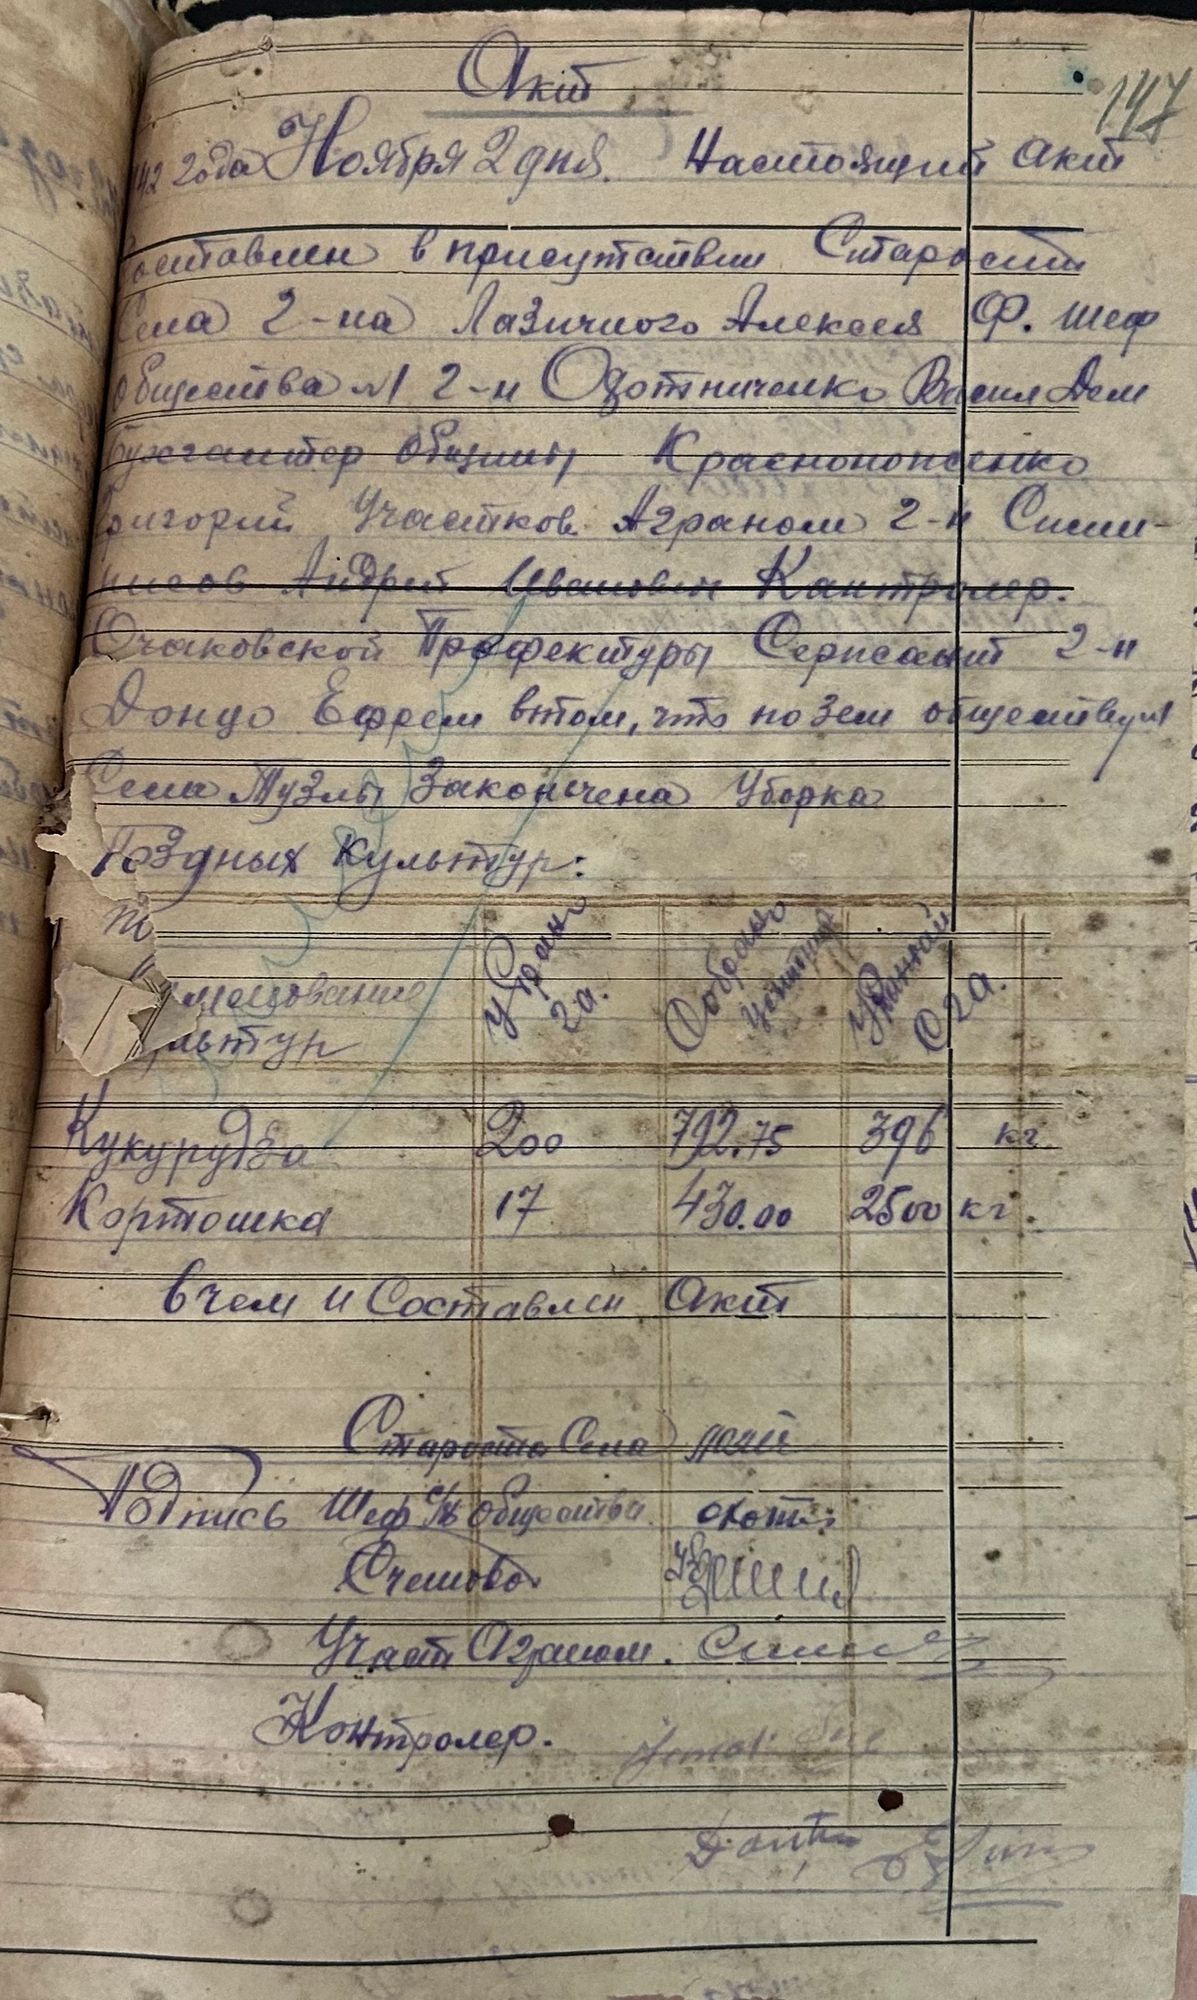 Акт
147
1942 года Ноября 2 дня. Настоящий акт
составлен в присутствии Старости
Села г-на Лазичного Алексея Ф. шеф
общества №1 г-н Охотниченко Васил Дем
бухгалтер общины Краснопоженко
Григорий Участков. Аграном г-н
Андрей Иванович Кантролер.
Очаковской Префектуры Сержсант г-н
Донцо Ефрем втом, что по зем обществу №1
Села Тузлы Закончена уборка
Поздных культур:
культур
Убрано га.
Собрано центнер
Урожай с га.
Кукурудза 200 792.75 396 кг
Кортошка 17 430.00 2500 кг.
в чем и Составлен Акт
Староста Села
Подпись Шеф с/х общества
Счетово
Участ Аграном.
Контролер.